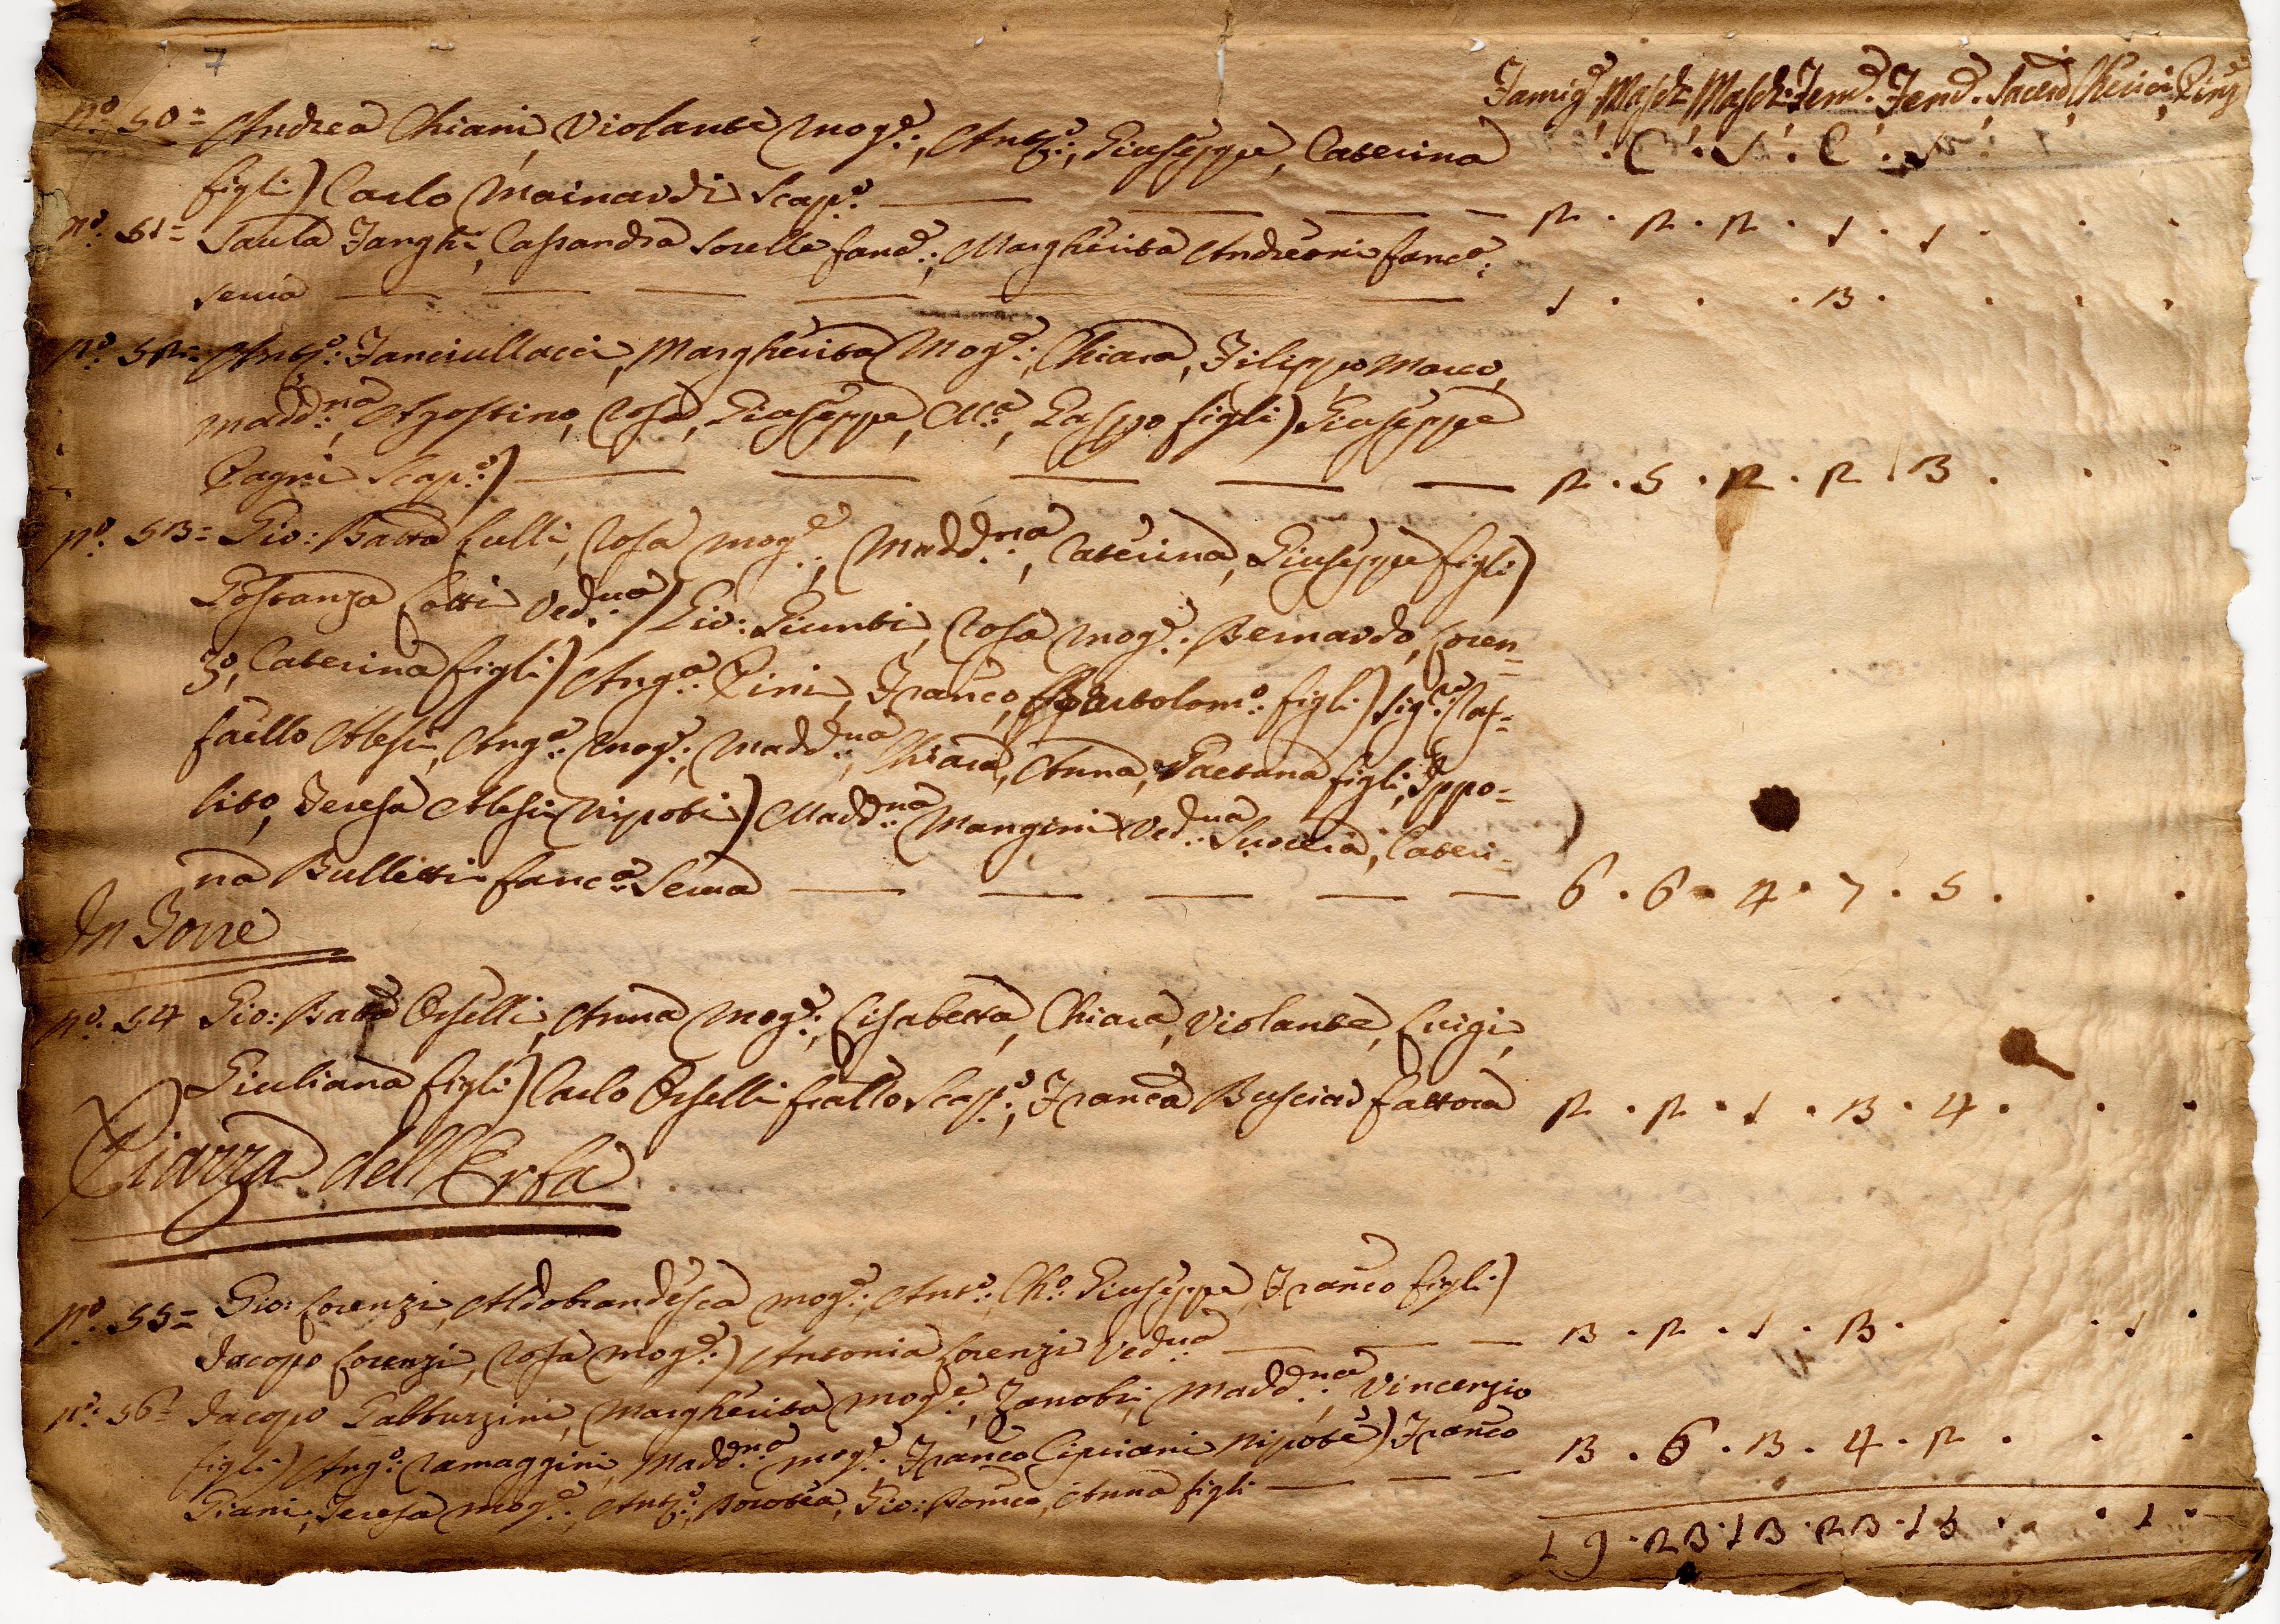 7
Famig.e, Masch. Masch. Fem.e. Fem.e. Sacerd. Cherici, Pinz.e
. C . S . C . S .
N.o 50= Andrea Chiani, Violante Mog.e:, Ant.o:, Giuseppe, Caterina
figli) Carlo Mainardi Scap.o: 2 . 2 . 2 . 1 . 1 . . .
N.o 51= Paula Fanghi, Cassandra Sorelle fanc.e:, Margherita Andreoni fanc.a:
serva 1 . . . 3 . . . .
N.o 52= Ant.o: Fanciullacci, Margherita Mog.e:, Chiara, Filippo, Marco,
Madd.na, Agostino, Rosa, Giuseppe, M.a, Gaspo figli) Giuseppe
Pagni Scap.o:) 2 . 5 . 2 . 2 . 3 . . .
N.o 53= Gio: Batta Lulli, Rosa mog.e:, Madd.na, Caterina, Giuseppe figli)
Gostanza Lotti Ved.ua) Gio: Giunti, Rosa mog.e: Bernardo, Loren-
zo, Caterina figli) Ang.a: Pini, Franco, Bartolom.o: figli) Sig.re Raf-
faello Alesi, Ang.a: mog.e:, Madd.na, Chiara, Anna, Gaetana figli, Ippo-
lito, Teresa Alesi Nipoti) Madd.na Mangini Ved.ua Suocera, Cateri-
na Bulletti fanc.a: Serva 6 . 6 . 4 . 7 . 5 . . .
In Torre
N.o 54 Gio: Batta Orselli, Anna Mog.e:, Lisabetta, Chiara, Violante, Luigi,
Giuliana figli) Carlo Orselli frallo Scap.o:, Franca Busciai fattora 2 . 2 . 1 . 3 . 4 . . .
Piazza dell'Erba
N.o 55= Gio: Lorenzi, Aldobrandesca mog.e:, Ant.o:, Ch.o: Giuseppe, Franco figli)
Jacopo Lorenzi, Rosa mog.e:) Antonia Lorenzi Ved.ua 3 . 2 . 1 . 3 . . . 1 .
N.o 56= Jacopo Gabburzini, Margherita mog.e:, Zanobi, Madd.na, Vincenzio
figli) Ang.o: Ramaggini, Madd.na mog.e: Franco Cipriani Nipote) Franco
Giani, Teresa mog.e:, Ant.o:, Dorotea, Gio: Domco, Anna figli 3 . 6 . 3 . 4 . 2 . . .
19 . 23 . 13 . 23 . 15 . . 1 .